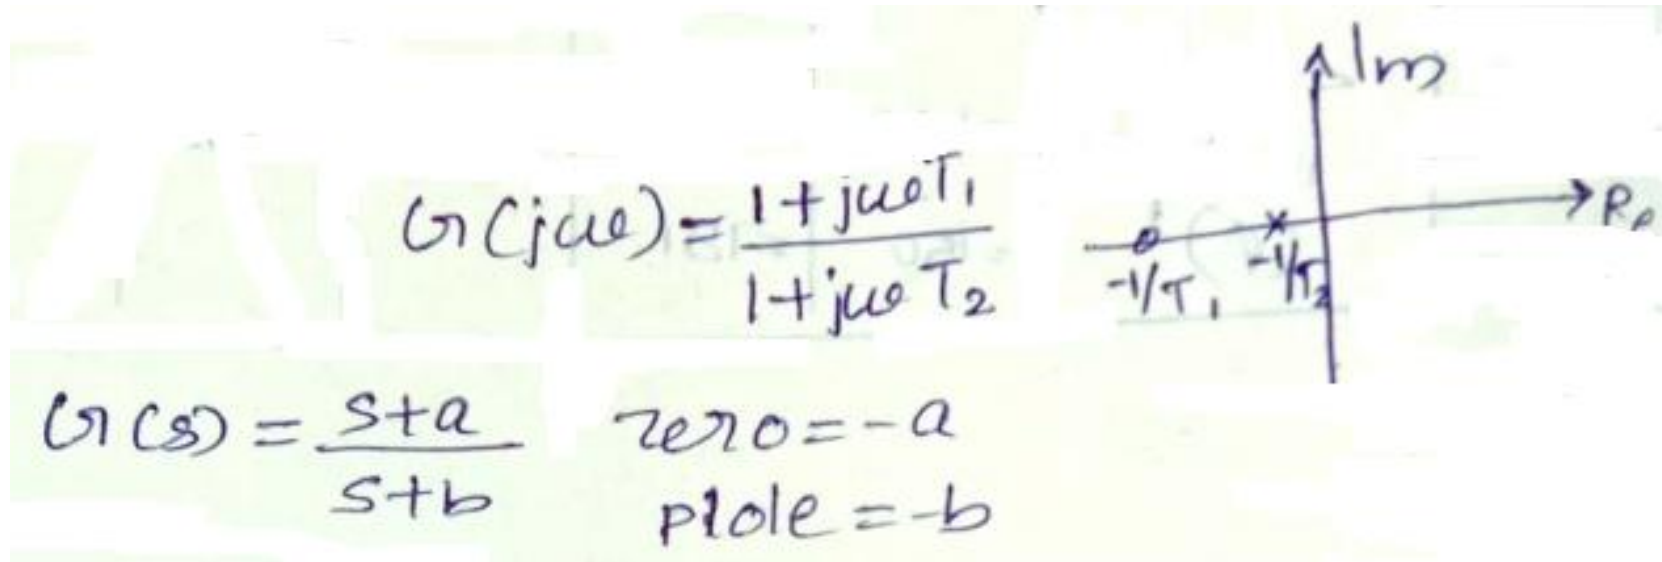 Im
G(jω) = 1+jωT₁ / 1+jωT₂
Re
-1/T₁ -1/T₂
G(s) = s+a / s+b zero = -a
plole = -b